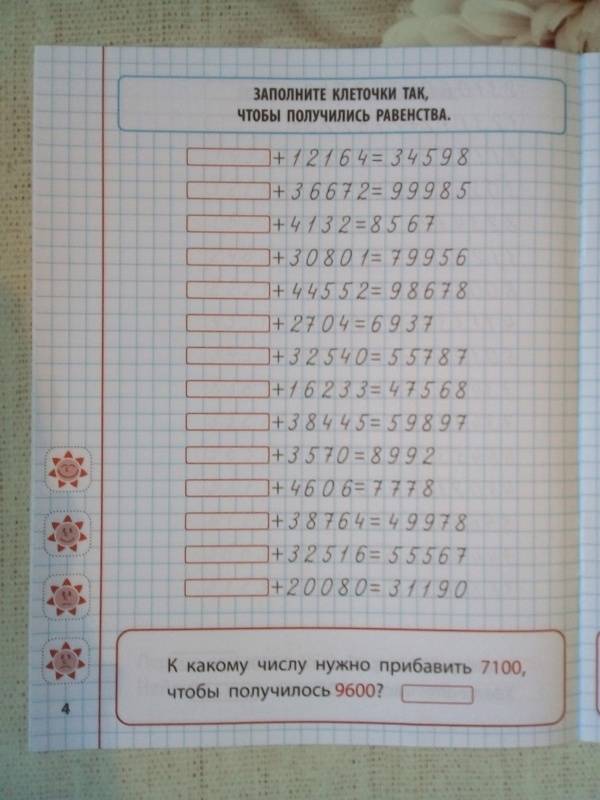 ЗАПОЛНИТЕ КЛЕТОЧКИ ТАК,
ЧТОБЫ ПОЛУЧИЛИСЬ РАВЕНСТВА.
+12164=34598
+36672=99985
+4132=8567
+30801=79956
+44552=98678
+2704=6937
+32540=55787
+16233=47568
+38445=59897
+3570=8992
+4606=7778
+38764=49978
+32516=55567
+20080=31190
К какому числу нужно прибавить 7100,
чтобы получилось 9600?
4